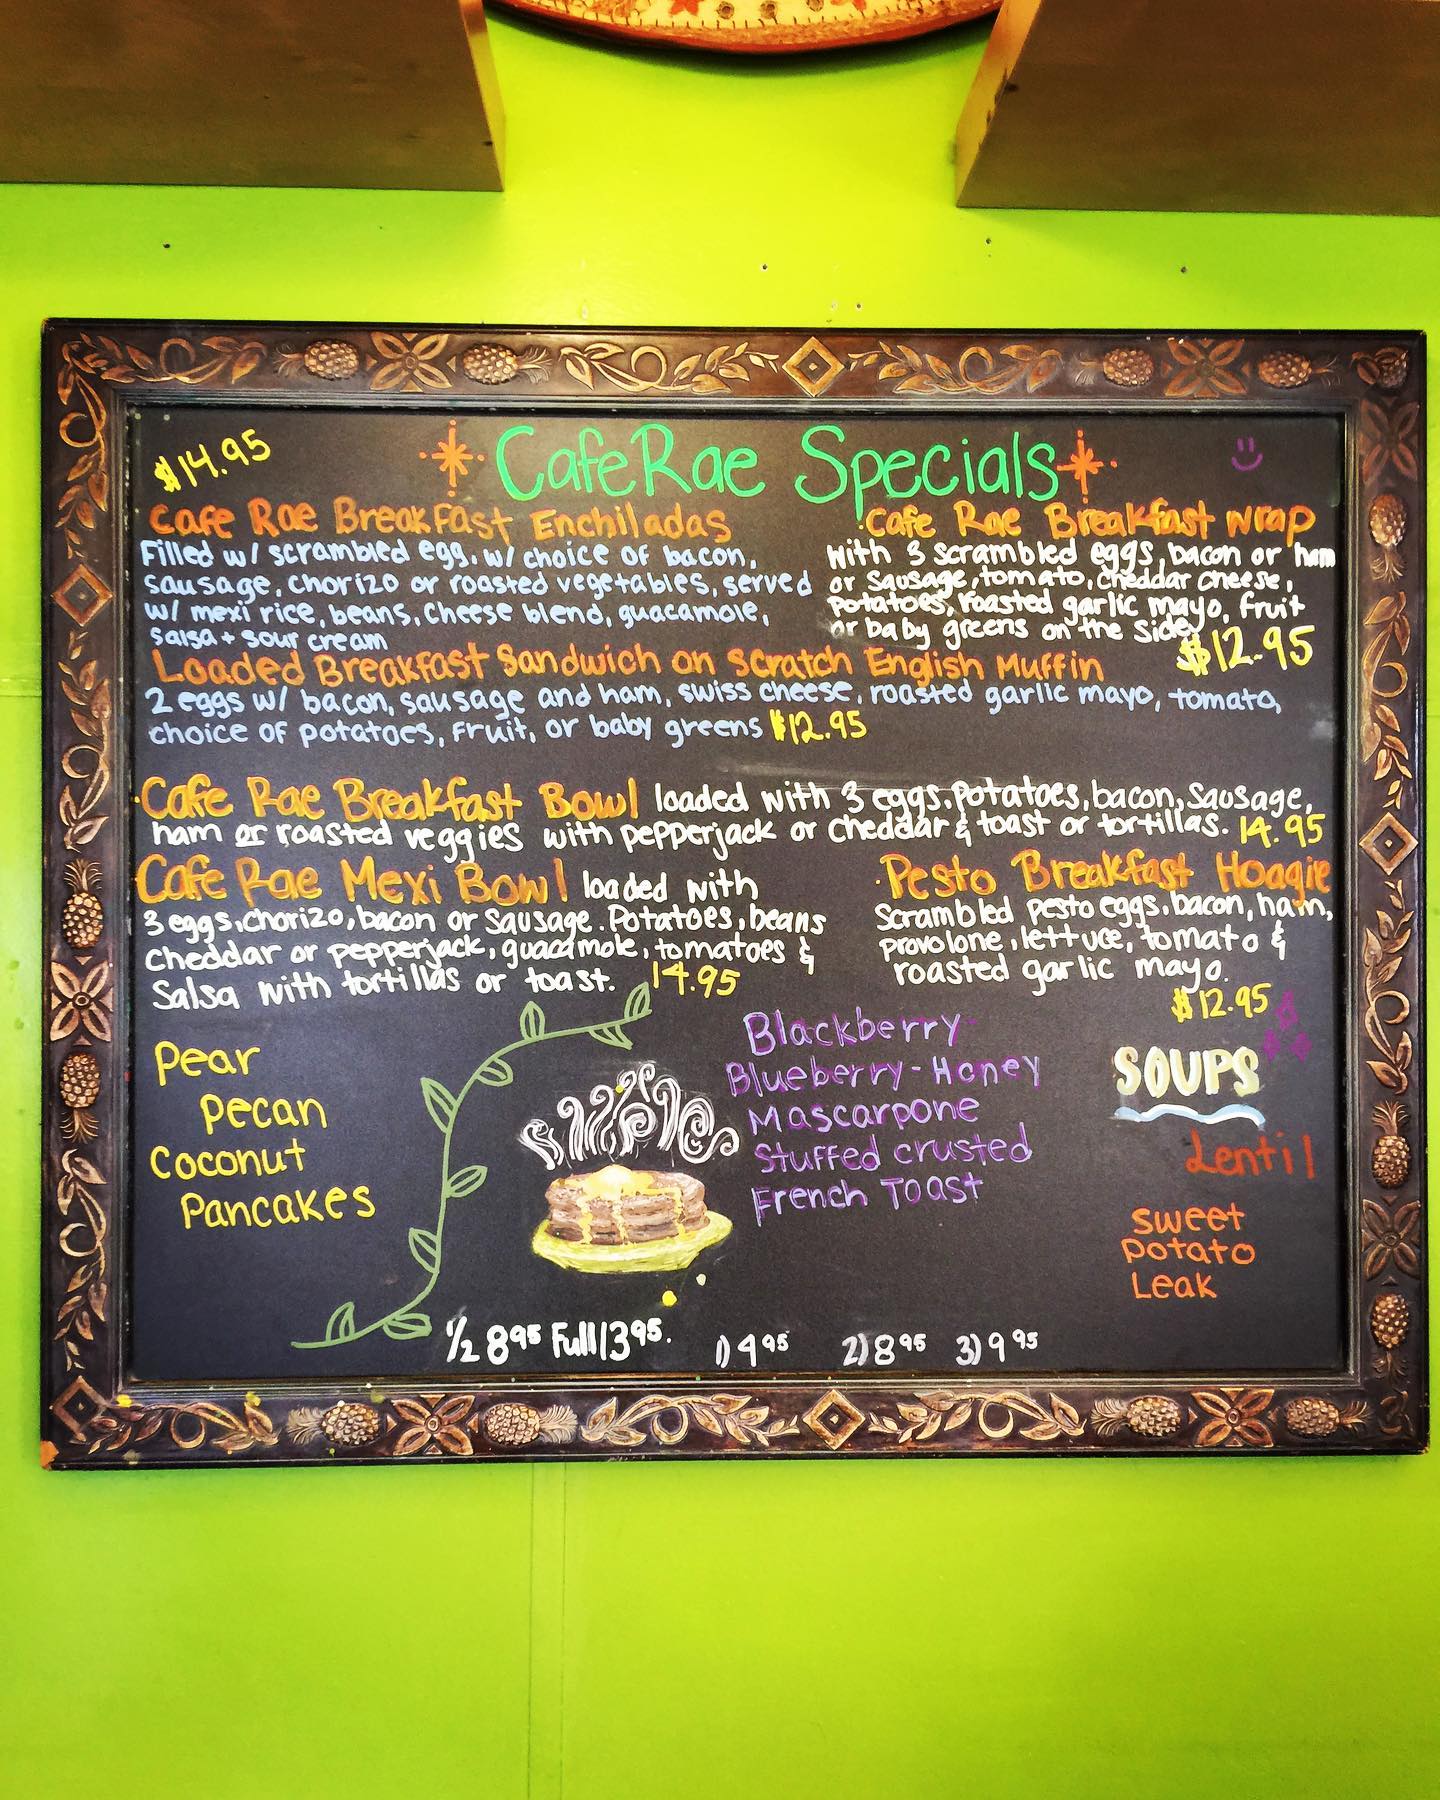 $14.95
CafeRae Specials
Cafe Rae Breakfast Enchiladas
Filled w/ scrambled egg, w/ choice of bacon,
sausage, chorizo or roasted vegetables, served
w/ mexi rice, beans, cheese blend, guacamole,
salsa + sour cream
Cafe Rae Breakfast wrap
with 3 scrambled eggs, bacon or ham
or sausage, tomato, cheddar cheese,
potatoes, roasted garlic mayo, fruit
or baby greens on the side
$12.95
Loaded Breakfast Sandwich on Scratch English Muffin
2 eggs w/ bacon, sausage and ham, swiss cheese, roasted garlic mayo, tomato,
choice of potatoes, fruit, or baby greens $12.95
Cafe Rae Breakfast Bowl loaded with 3 eggs, potatoes, bacon, sausage,
ham or roasted veggies with pepperjack or cheddar & toast or tortillas. 14.95
Cafe Rae Mexi Bowl loaded with
3 eggs, chorizo, bacon or sausage. Potatoes, beans
cheddar or pepperjack, guacamole, tomatoes &
Salsa with tortillas or toast. 14.95
Pesto Breakfast Hoagie
Scrambled pesto eggs, bacon, ham,
provolone, lettuce, tomato &
roasted garlic mayo.
$12.95
Pear
Pecan
Coconut
Pancakes
1/2 8.95 Full 13.95.
Blackberry-
Blueberry-Honey
Mascarpone
Stuffed crusted
French Toast
1) 4.95 2) 8.95 3) 9.95
SOUPS
Lentil
sweet
potato
Leak